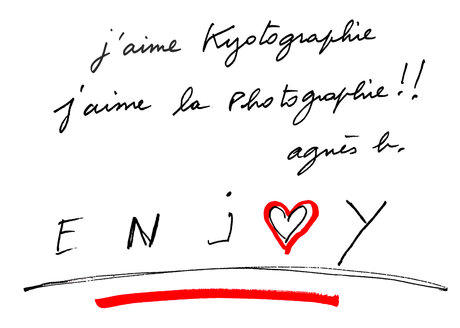 j'aime Kyotographie
j'aime la Photographie!!
agnès b.
ENj♥Y